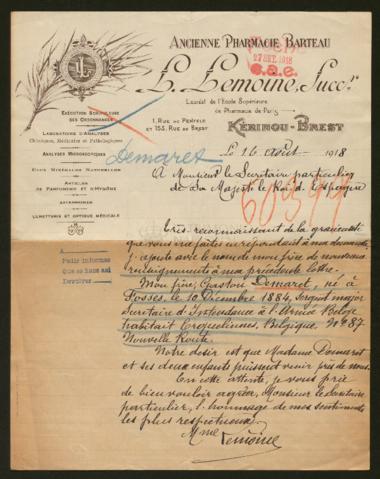 ANCIENNE PHARMACIE BARTEAU
L. Lemoine, Succr
27 SET. 1918
Lauréat de l'Ecole Supérieure
de Pharmacie de Paris
EXÉCUTION SCRUPULEUSE
DES ORDONNANCES
1, RUE DE PENFELD
ET 153, RUE DE BREST
KÉRINOU-BREST
LABORATOIRE D'ANALYSES
Chimiques, Médicales et Pathologiques
ANALYSES UROLOGIQUES
EAUX MINÉRALES NATURELLES
ARTICLES
DE PARFUMERIE ET D'HYGIÈNE
ACCESSOIRES
LUNETTERIE ET OPTIQUE MÉDICALE
Demaret
Le 16 août 1918
A Monsieur le Secrétaire particulier
de Sa Majesté le Roi d'Espagne
Très reconnaissant de la gracieuseté
que vous me faites en répondant à ma demande,
j'ajoute avec le nom de mon frère de nouveaux
renseignements à ma précédente lettre.
Mon frère Gaston Demaret, né à
Fosses, le 10 Décembre 1884, Sergent major
Secrétaire d'Intendance à l'Armée Belge
habitait Erquelinnes, Belgique, Nº 87
Nouvelle Route.
Notre désir est que Madame Demaret
et ses deux enfants puissent venir près de nous.
En cette attente, je vous prie
de bien vouloir agréer, Monsieur le Secrétaire
particulier, l'hommage de mes sentiments
les plus respectueux.
Mme Lemoine
A
Pedir informes